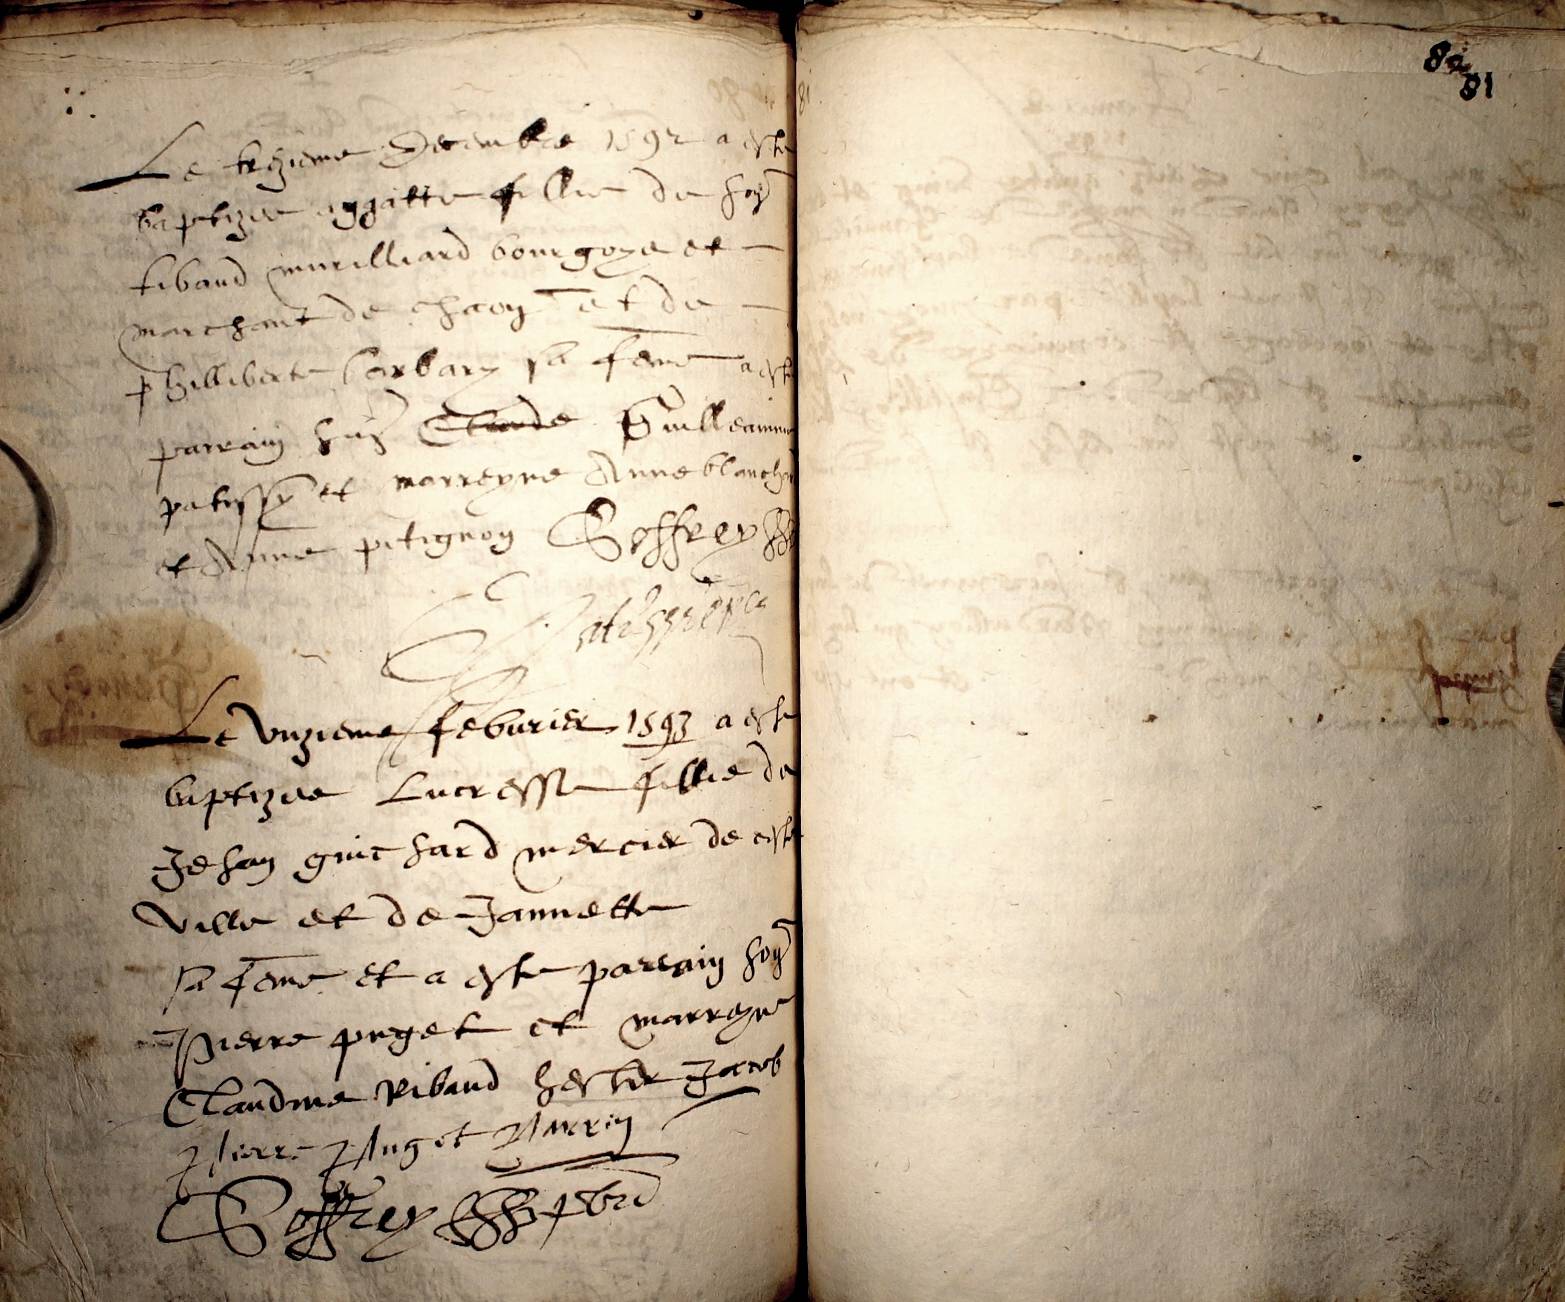 Le trezieme Decembre 1592 a este
baptizee aggatte fillie de hoñ
tibaud murilliard bourgoys et
marchant de chaon et de
philliberte barbary sa feme a este
parrain hoñ Claude Guilleaume
patissier et marreyne Anne blanchard
et Anne pitignon Goffrey
Le unzieme feburier 1593 a este
baptizee Lucresse fillie de
Jehan guichard mercier de ceste
ville et de Jannette
sa feme et a este parrain hoñ
Pierre puget et marreyne
Claudine Ribaud hester Jacob
Pierre Puget Parrein
Goffrey pbrē
81